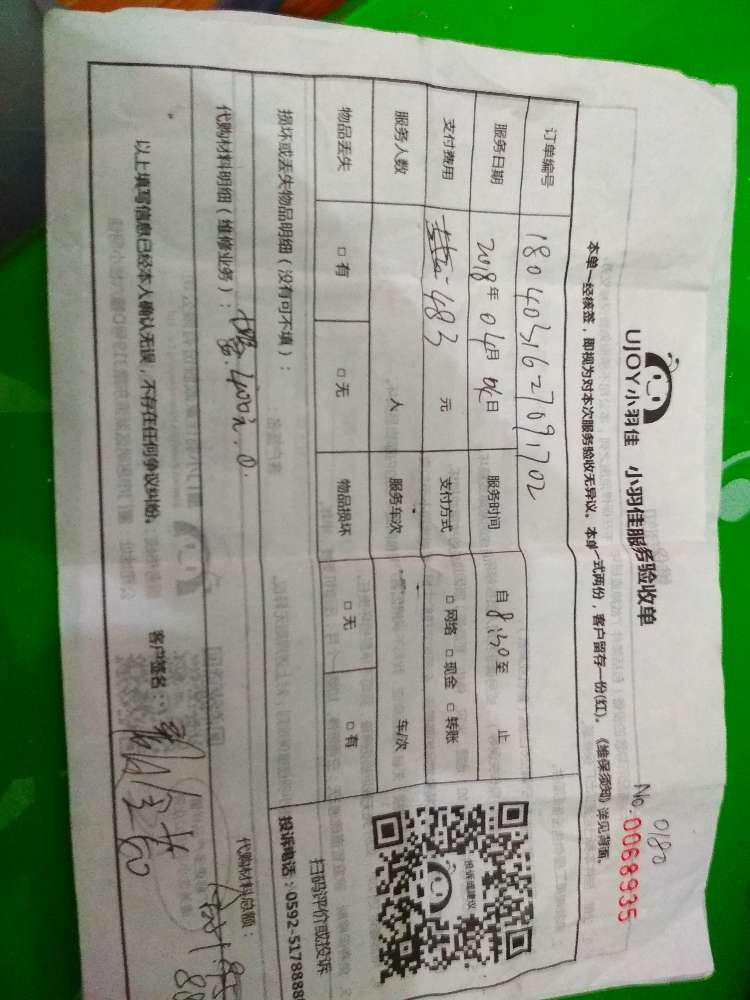 UJOY小羽佳 小羽佳服务验收单
0180
No.0068935
本单一经核签，即视为对本次服务验收无异议。本单一式两份，客户留存一份(红)。《维保须知》详见背面。
订单编号 1804031627091702
服务日期 2018年04月 日 服务时间 自8:30至 止
支付费用 483 元 支付方式 □网络 □现金 □转账
服务人数 人 服务车次 车/次
物品丢失 □有 □无 物品损坏 □无 □有
投诉或建议
扫码评价或投诉
投诉电话：0592-5178888
损坏或丢失物品明细（没有可不填）：
代购材料明细（维修业务）： 代购材料总额：
以上填写信息已经本人确认无误，不存在任何争议纠纷。 客户签名：